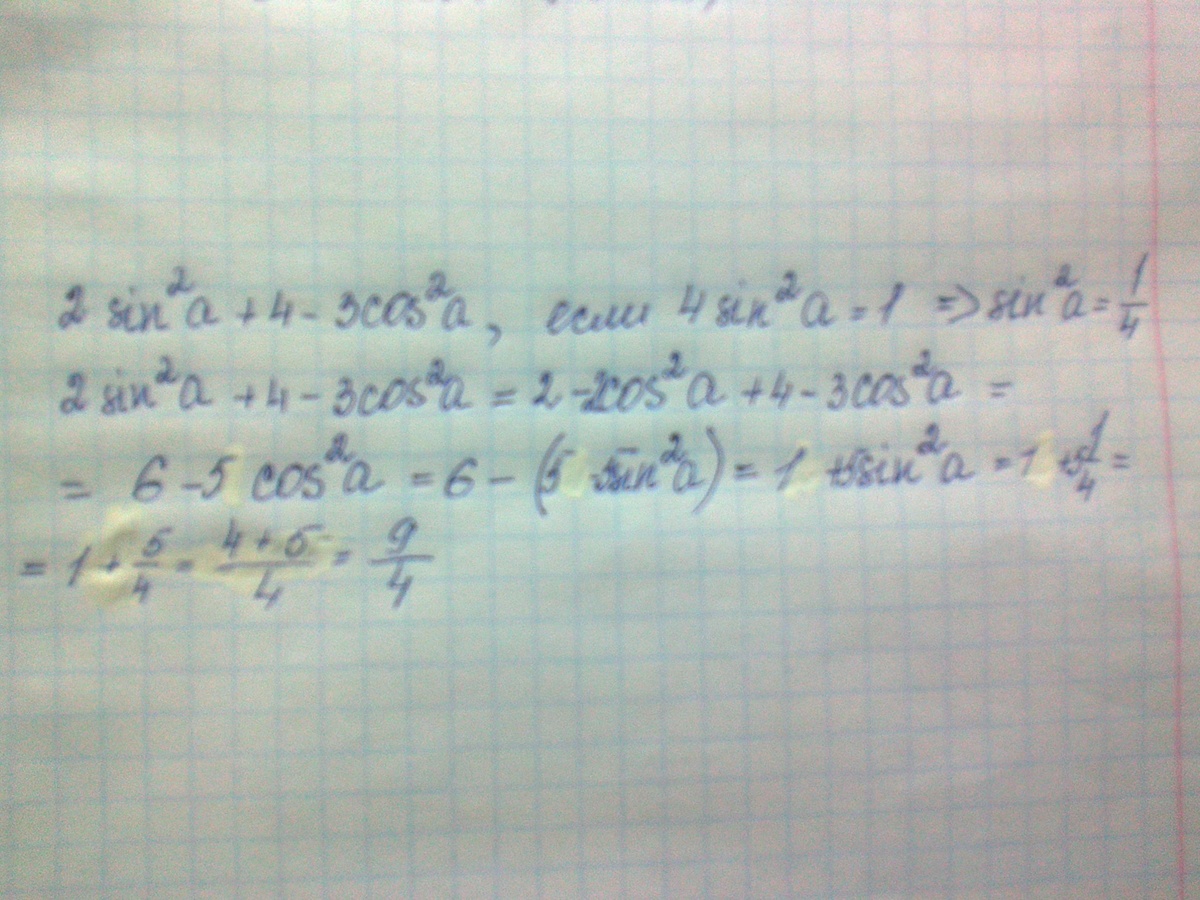 2 sin²a + 4 - 3cos²a, если 4 sin²a = 1 => sin²a = 1/4
2 sin²a + 4 - 3cos²a = 2 - 2cos²a + 4 - 3cos²a =
= 6 - 5 cos²a = 6 - (5 - 5sin²a) = 1 + 5sin²a = 1 + 5 1/4 =
= 1 + 5/4 = 4+5/4 = 9/4